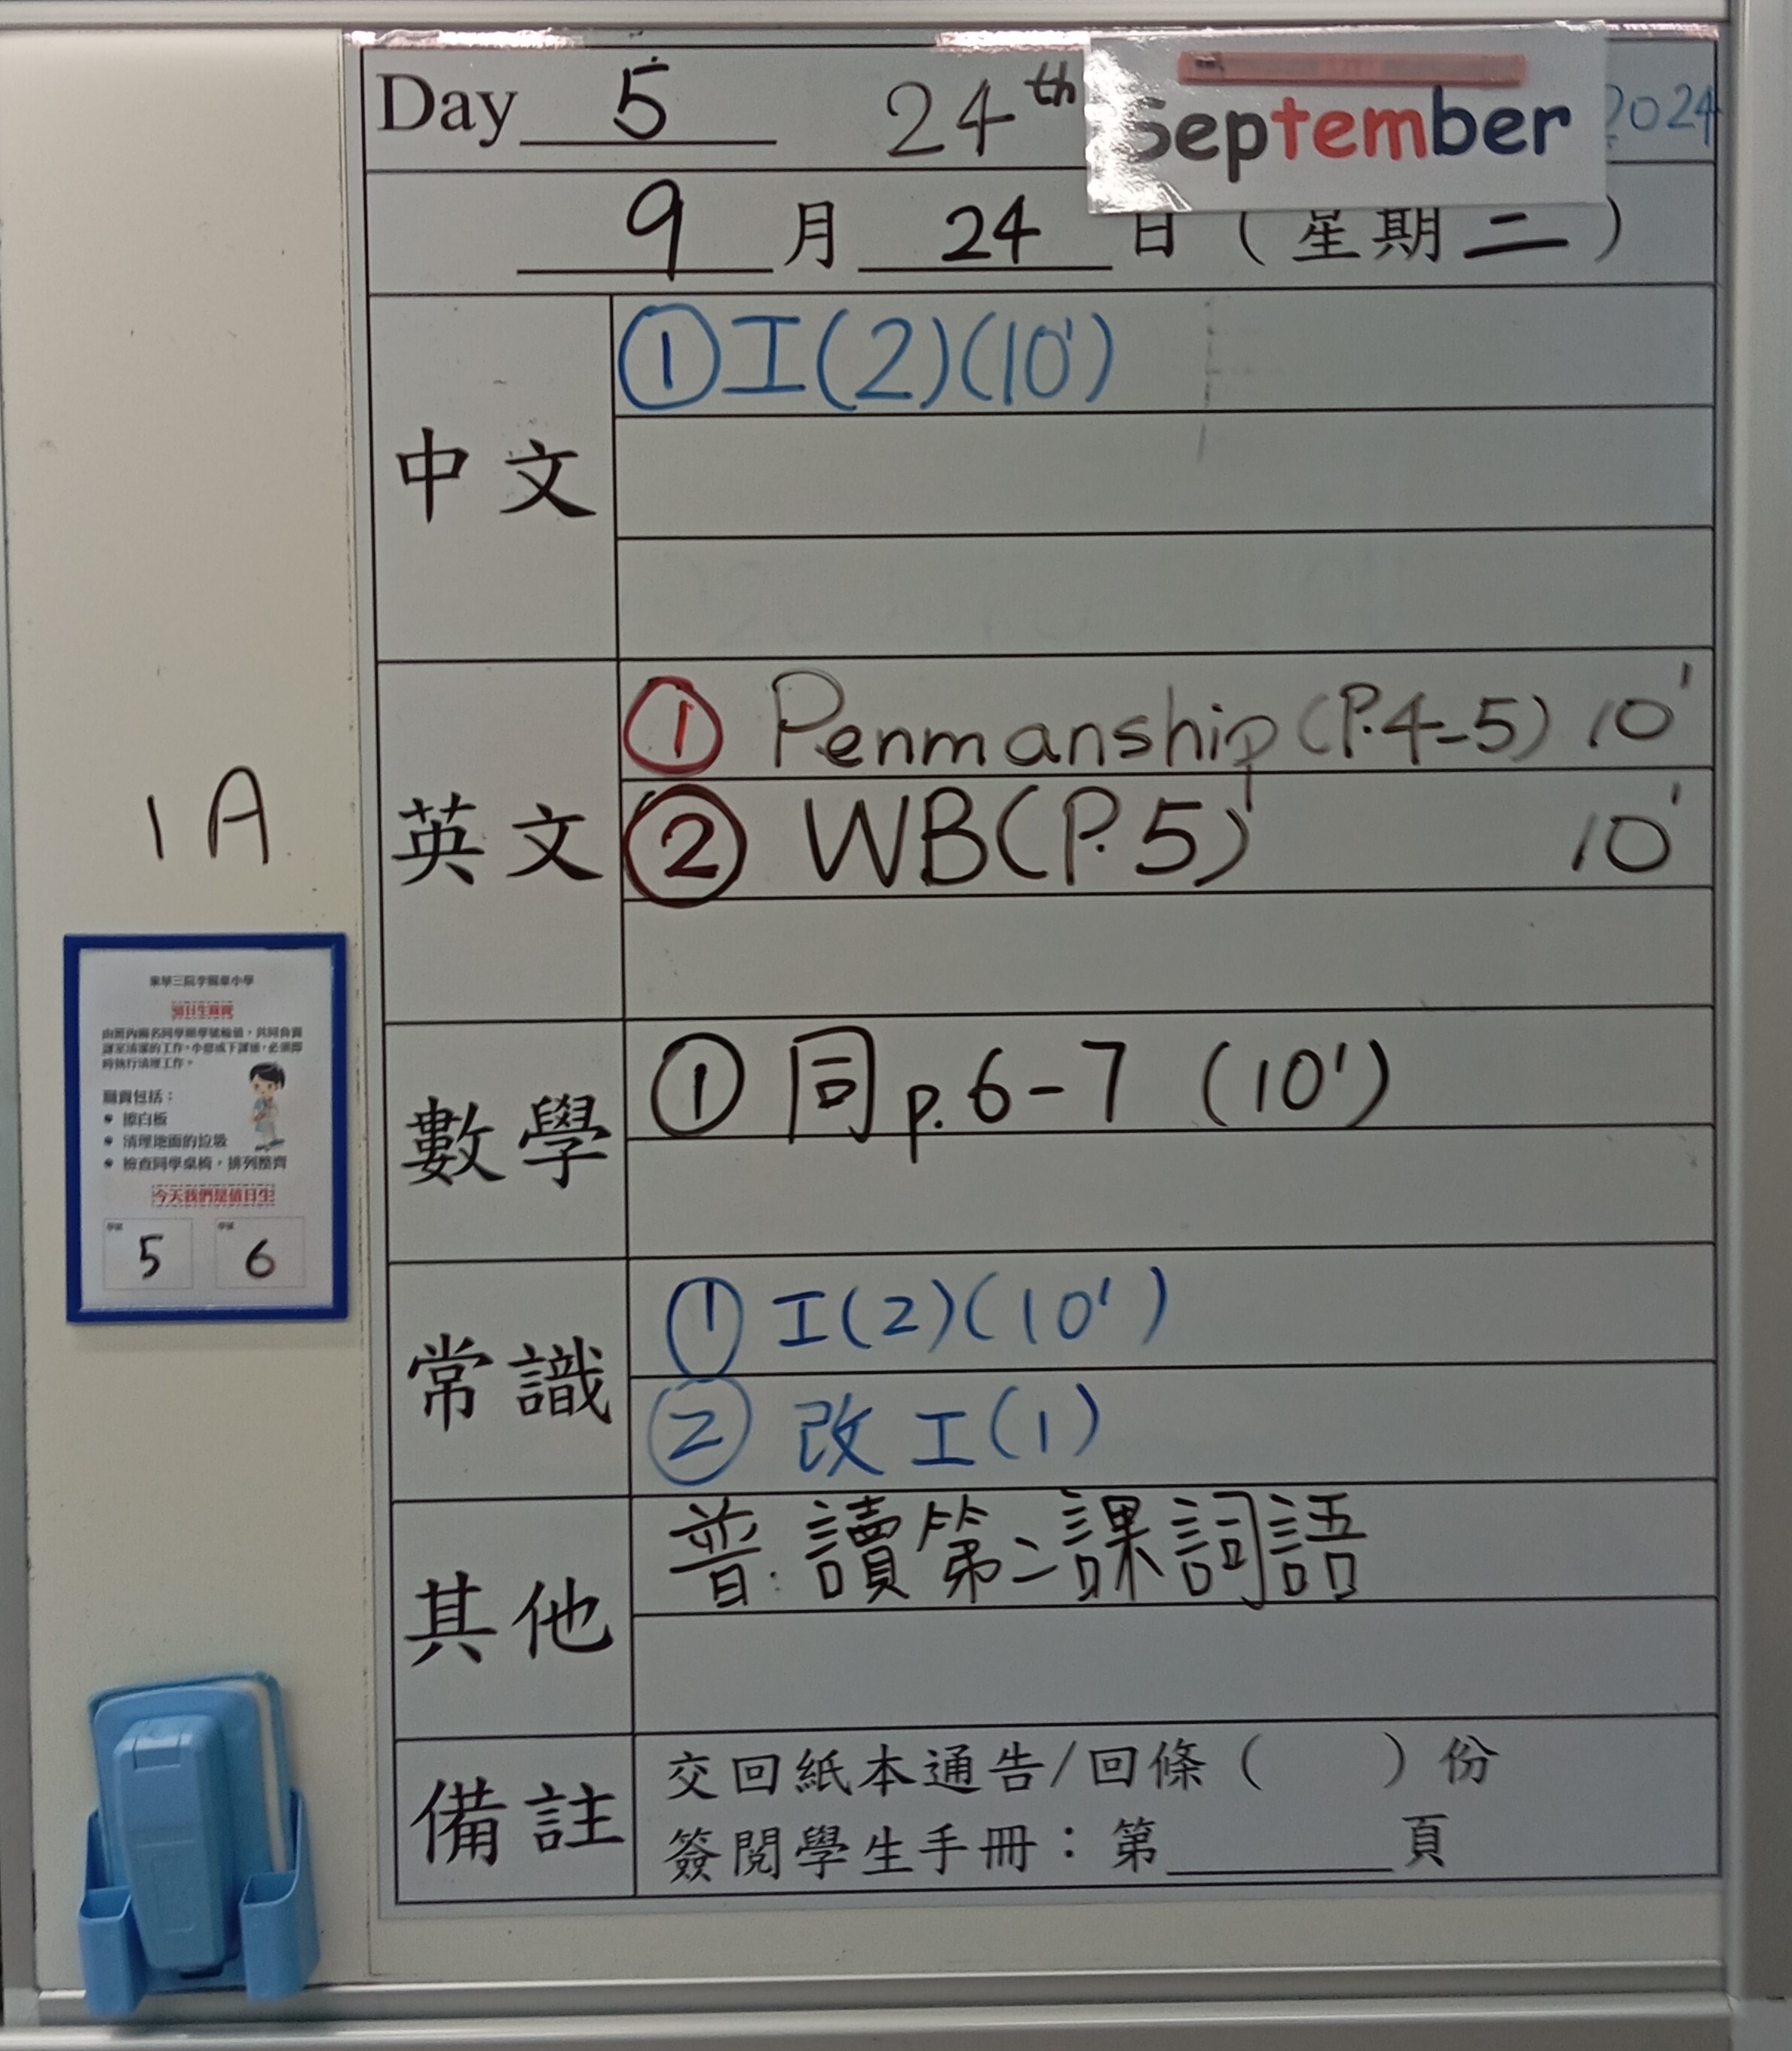 Day 5 24th September 2024
9 月 24 日 ( 星期 二 )
中文
① I(2)(10')
英文
① Penmanship (P.4-5) 10'
② WB(P.5) 10'
數學
① 同 p.6-7 (10')
常識
① I(2)(10')
② 改 I(1)
其他
普: 讀第二課詞語
備註
交回紙本通告/回條 ( ) 份
簽閱學生手冊：第______頁
1A
值日生職責
由班內兩名同學順學號輪值，共同負責
課室清潔的工作，小息或下課後，必須即
時執行清理工作。
職責包括：
• 擦白板
• 清理地面的垃圾
• 檢查同學桌椅，排列整齊
今天我們是值日生
學號 學號
5 6